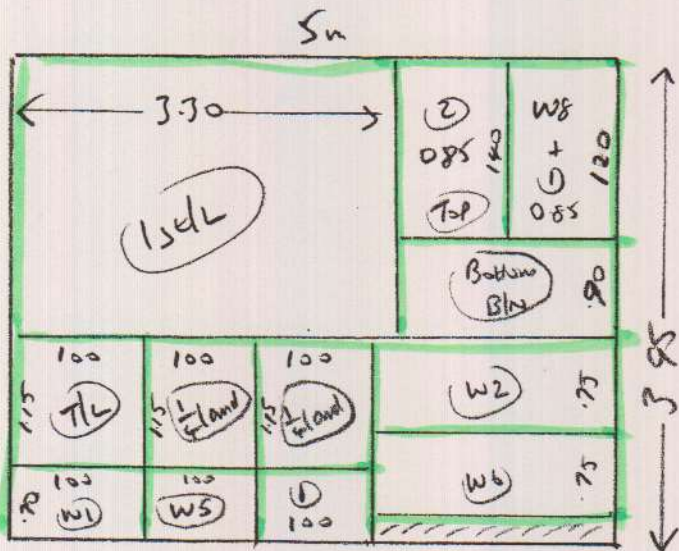 5m
3.30
1st/L
2
085
140
Top
W8
+
1
085
120
Bottom
B/N
.90
3 95
100
1.15
T/L
100
1.15
1/4 land
100
1.15
1/4 land
W2
.75
.70
100
W1
100
W5
1
100
W6
.75